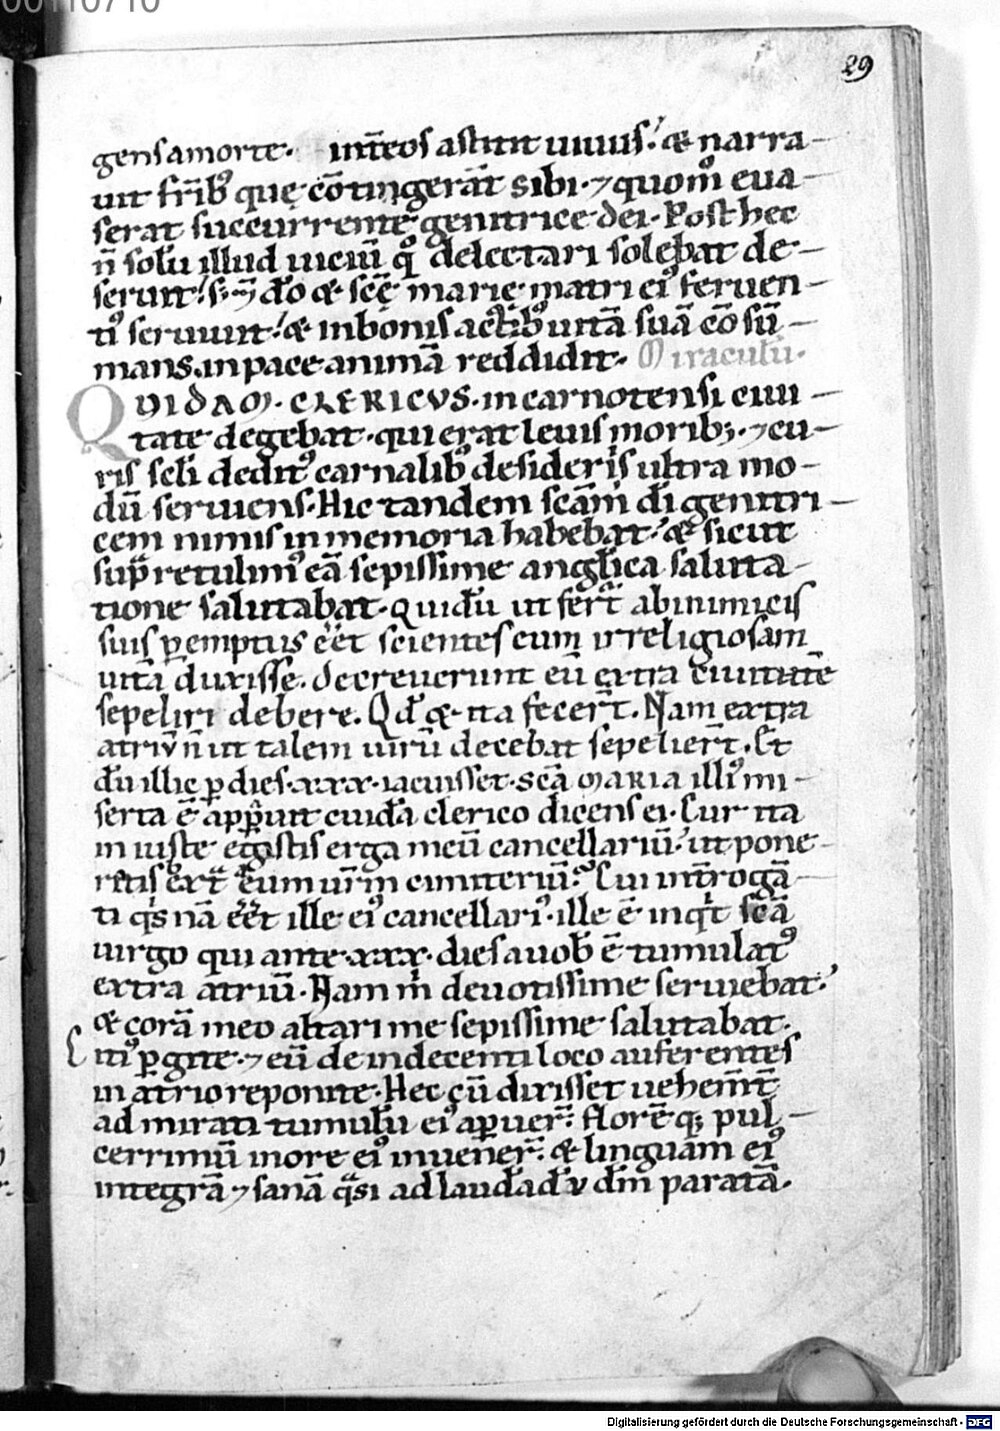 29
gens a morte. int̄eos astitit uiuus.' & narra-
uit fr̄ib; quę cōtingerāt sibi. ⁊ quom̊ eua-
serat succurrente genitrice dei. Post hec
n̄ solū illud uiciū q̊ delectari solebat de-
seruit.' s; ⁊ dō & scę̄ marię matri ei᾽ feruen-
ti᾽ seruiuit.' & in bonis actib; uitā suā cōsū-
mans. in pace animā reddidit. Miraculū.
QUIDAM. CLERICVS. in carnotensi ciui-
tate degebat. qui erat leuis morib;. ⁊ cu-
ris scli dedit᾽ carnalib; desideriis ultra mo-
dū seruiens. Hic tandem scām di genitri-
cem nimis in memoria habebat.' & sicut
sup̄ retulim᾽ eā sepissime anglica saluta-
tione salutabat. Qui dū ut fert̄ ab inimicis
suis pemptus eēt scientes eum irreligiosam
uitā duxisse. decreuerunt eū extra ciuitatē
sepeliri debere. Qd̄ & ita fecert̄. Nam extra
atriv̄ n̄ ut talem uirū decebat sepeliert̄. Et
dū illic p dies. xxx. iacuisset. scā MARIA illi᾽ mi-
serta ē apparuit cuidā clerico dicens ei. Cur ita
in iuste egistis erga meū cancellariū.' ut pone-
retis ext̄ eum ur̄m cimiteriū? Cui int̄rogā-
ti q̇s nā eēt ille ei᾽ cancellari᾽. ille ē inq̇t scā
uirgo qui ante. xxx. dies a uob̄ ē tumulat᾽
extra atriū. Nam m̄ deuotissime seruiebat.'
& corā meo altari me sepissime salutabat.
iti᾽ pgite. ⁊ eū de indecenti loco auferentes
in atrio reponite. Hec cū dixisset uehem̄t̄
ad mirati tumulū ei᾽ apuer̄. florē q; pul-
cerrimū in ore ei᾽ inuener̄. & linguam ei᾽
integrā ⁊ sanā q̄si ad laudādv̄ dm̄ paratā.
Digitalisierung gefördert durch die Deutsche Forschungsgemeinschaft - DFG